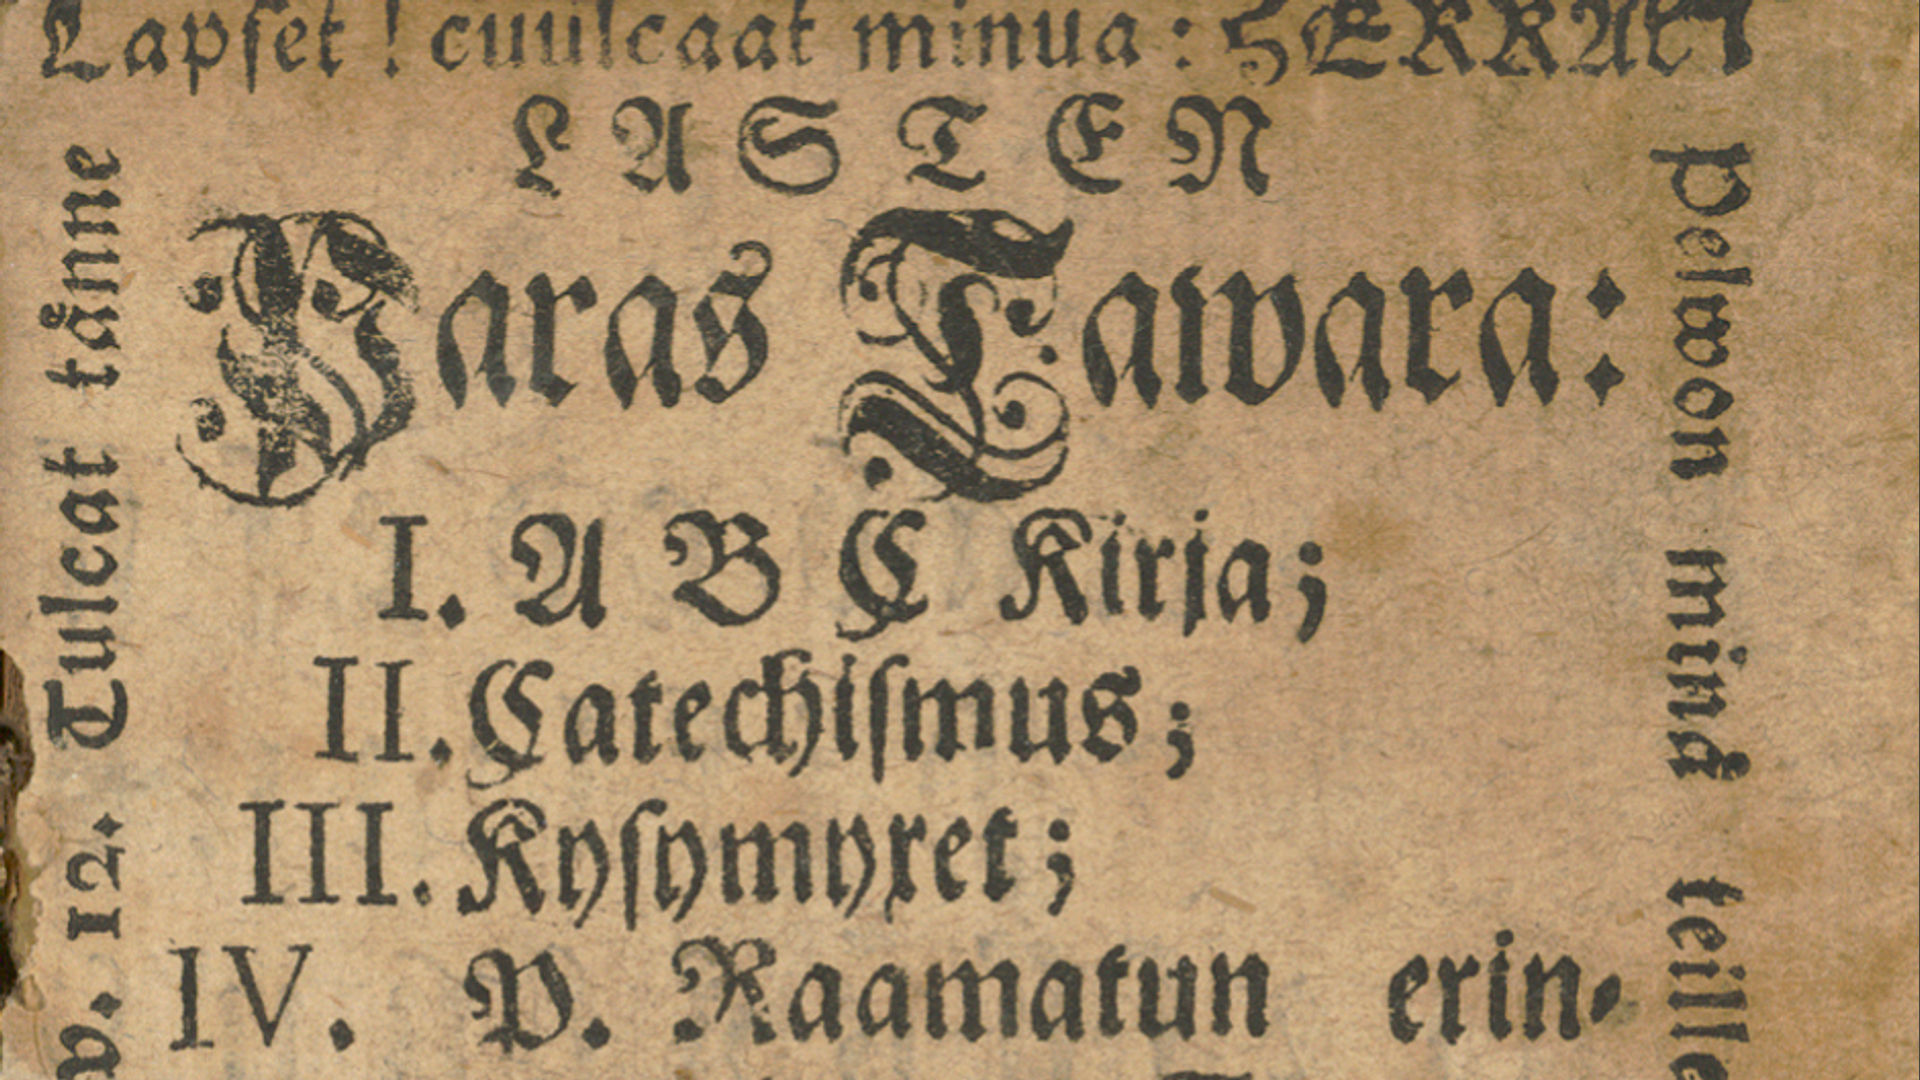 Lapset! cuulcaat minua: HERRAN
LASTEN
Paras Tawara:
I. A B C Kirja;
II. Catechismus;
III. Kysymyxet;
IV. P. Raamatun erin-
w. 12. Tulcat tånne
pelwon minå teille